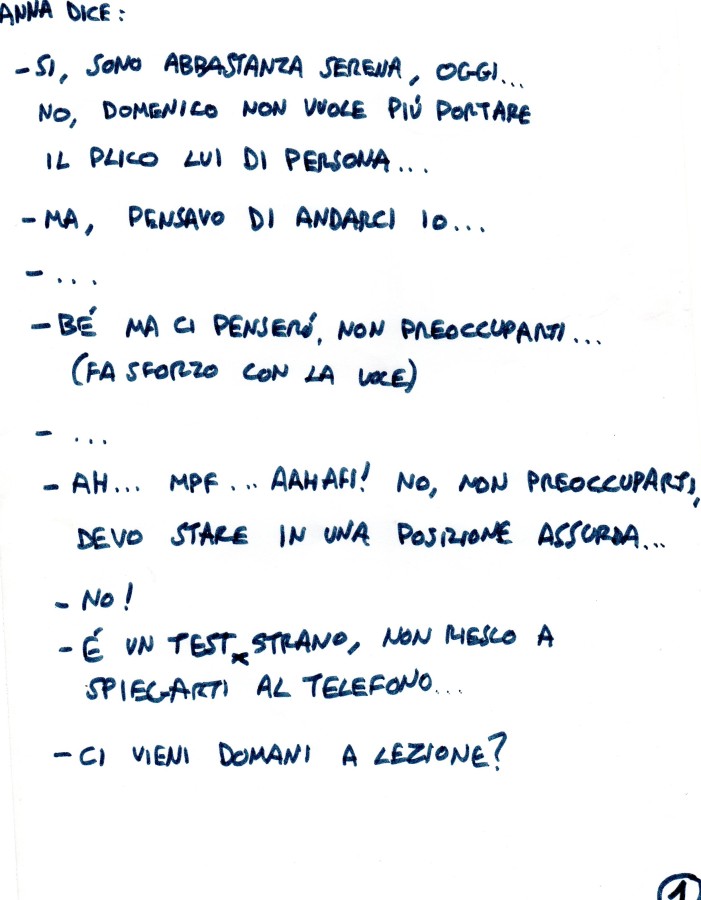 ANNA DICE:
- SI, SONO ABBASTANZA SERENA, OGGI...
NO, DOMENICO NON VUOLE PIÚ PORTARE
IL PLICO LUI DI PERSONA...
- MA, PENSAVO DI ANDARCI IO...
- ...
- BÉ MA CI PENSERÓ, NON PREOCCUPARTI...
(FA SFORZO CON LA VOCE)
- ...
- AH... MPF... AAHAH! NO, NON PREOCCUPARTI,
DEVO STARE IN UNA POSIZIONE ASSURDA...
- NO!
- É UN TEST STRANO, NON RIESCO A
SPIEGARTI AL TELEFONO...
- CI VIENI DOMANI A LEZIONE?
1